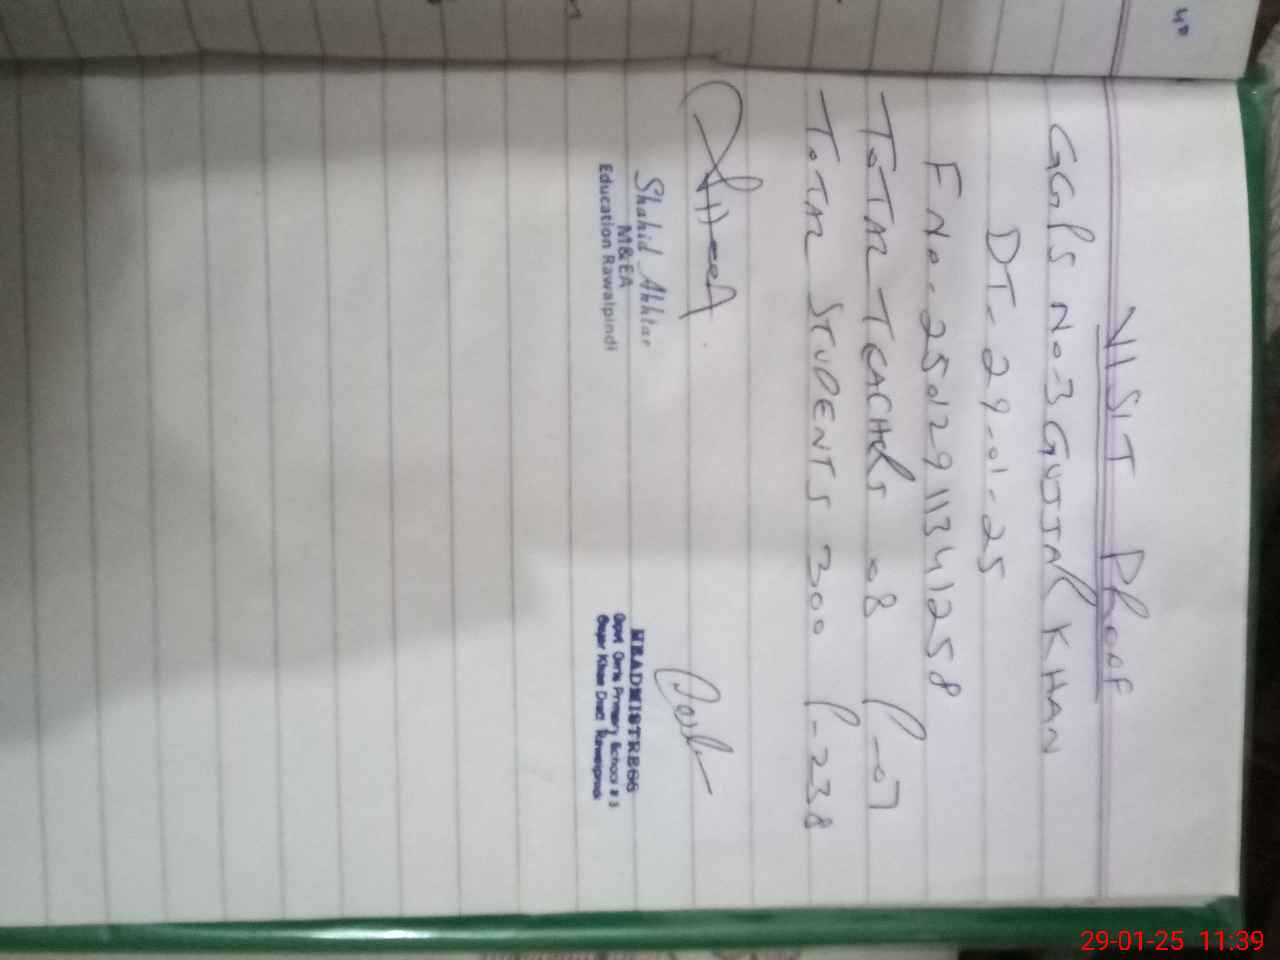 VISIT PROOF
GGPS No-3 GUJJAR KHAN
DT-29-01-25
F No-25012911341258
TOTAL TEACHERS 08 P-07
TOTAL STUDENTS 300 P-238
Shahid Akhtar
M&EA
Education Rawalpindi
HEADMISTRESS
Govt Girls Primary School # 3
Gujar Khan Distt Rawalpindi
29-01-25 11:39